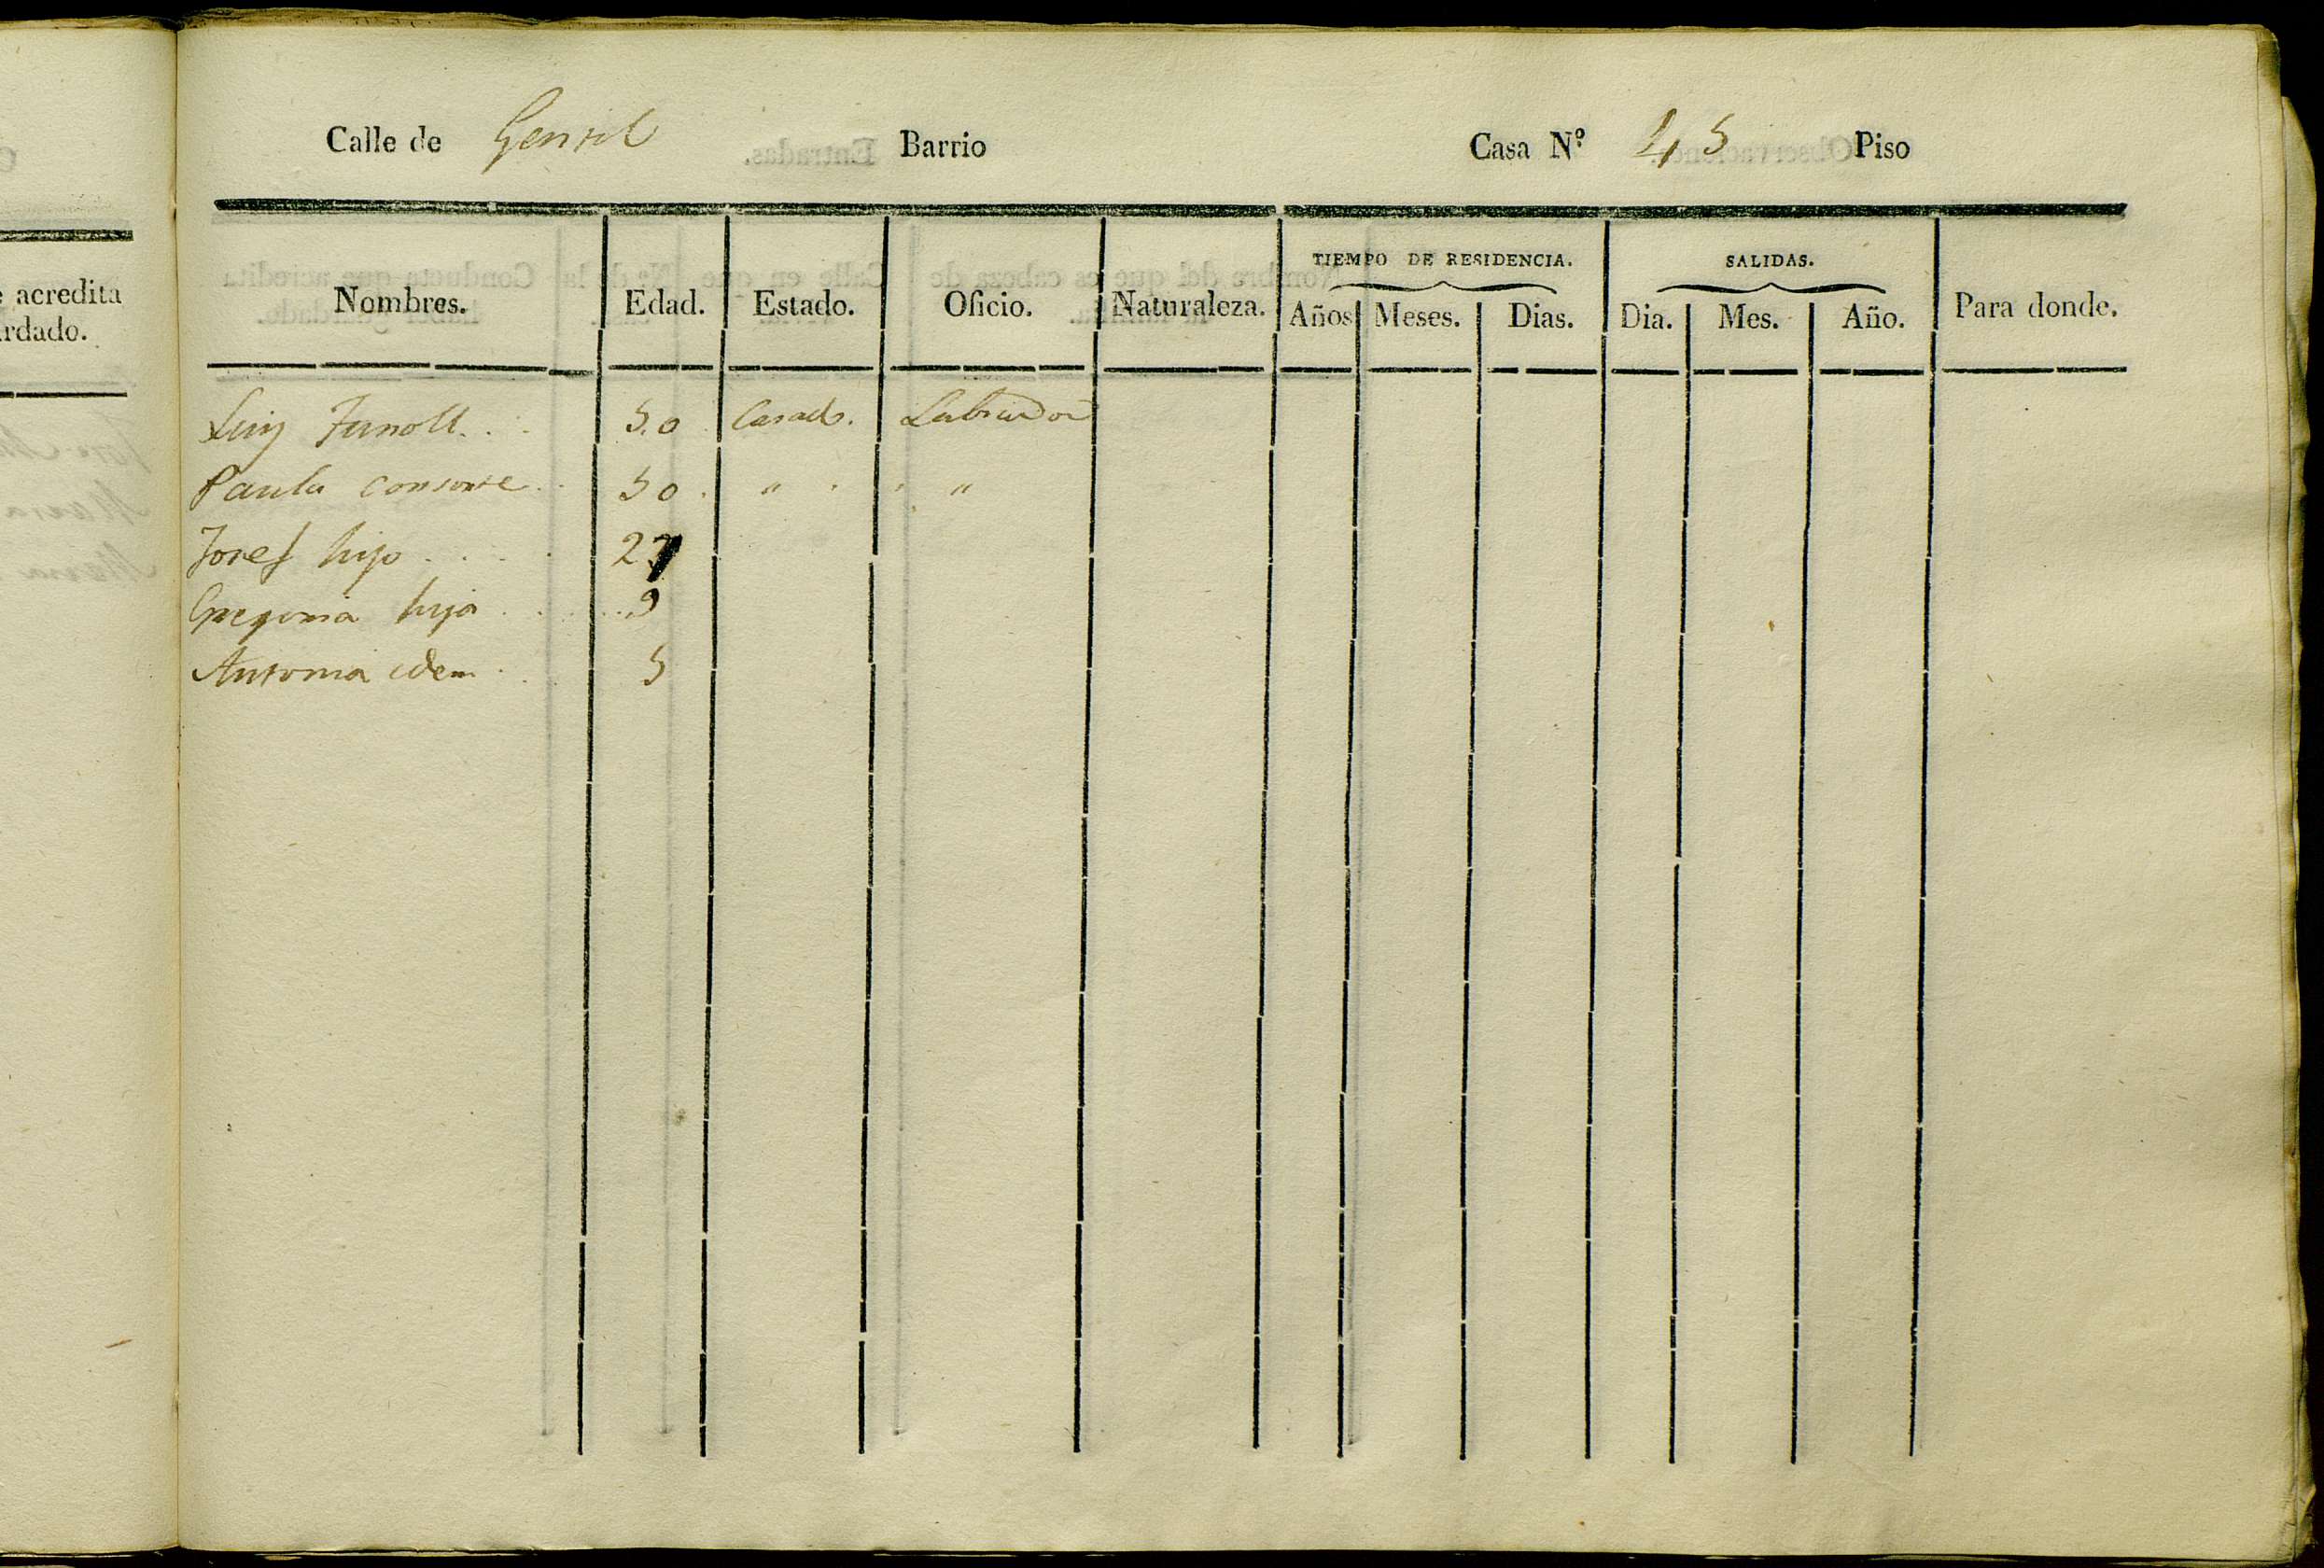 acredita
rdado.
Calle de Gentil Barrio Casa Nº 45 Piso
TIEMPO DE RESIDENCIA. SALIDAS.
Nombres. Edad. Estado. Oficio. Naturaleza. Años Meses. Dias. Dia. Mes. Año. Para donde.
Luiz Junoll. . . 50 Casado. Labrador
Paula consorte . . 50 . " . . "
Josef hijo . . . . 27
Gregoria hija . . . . 9
Antonia idem . . 5